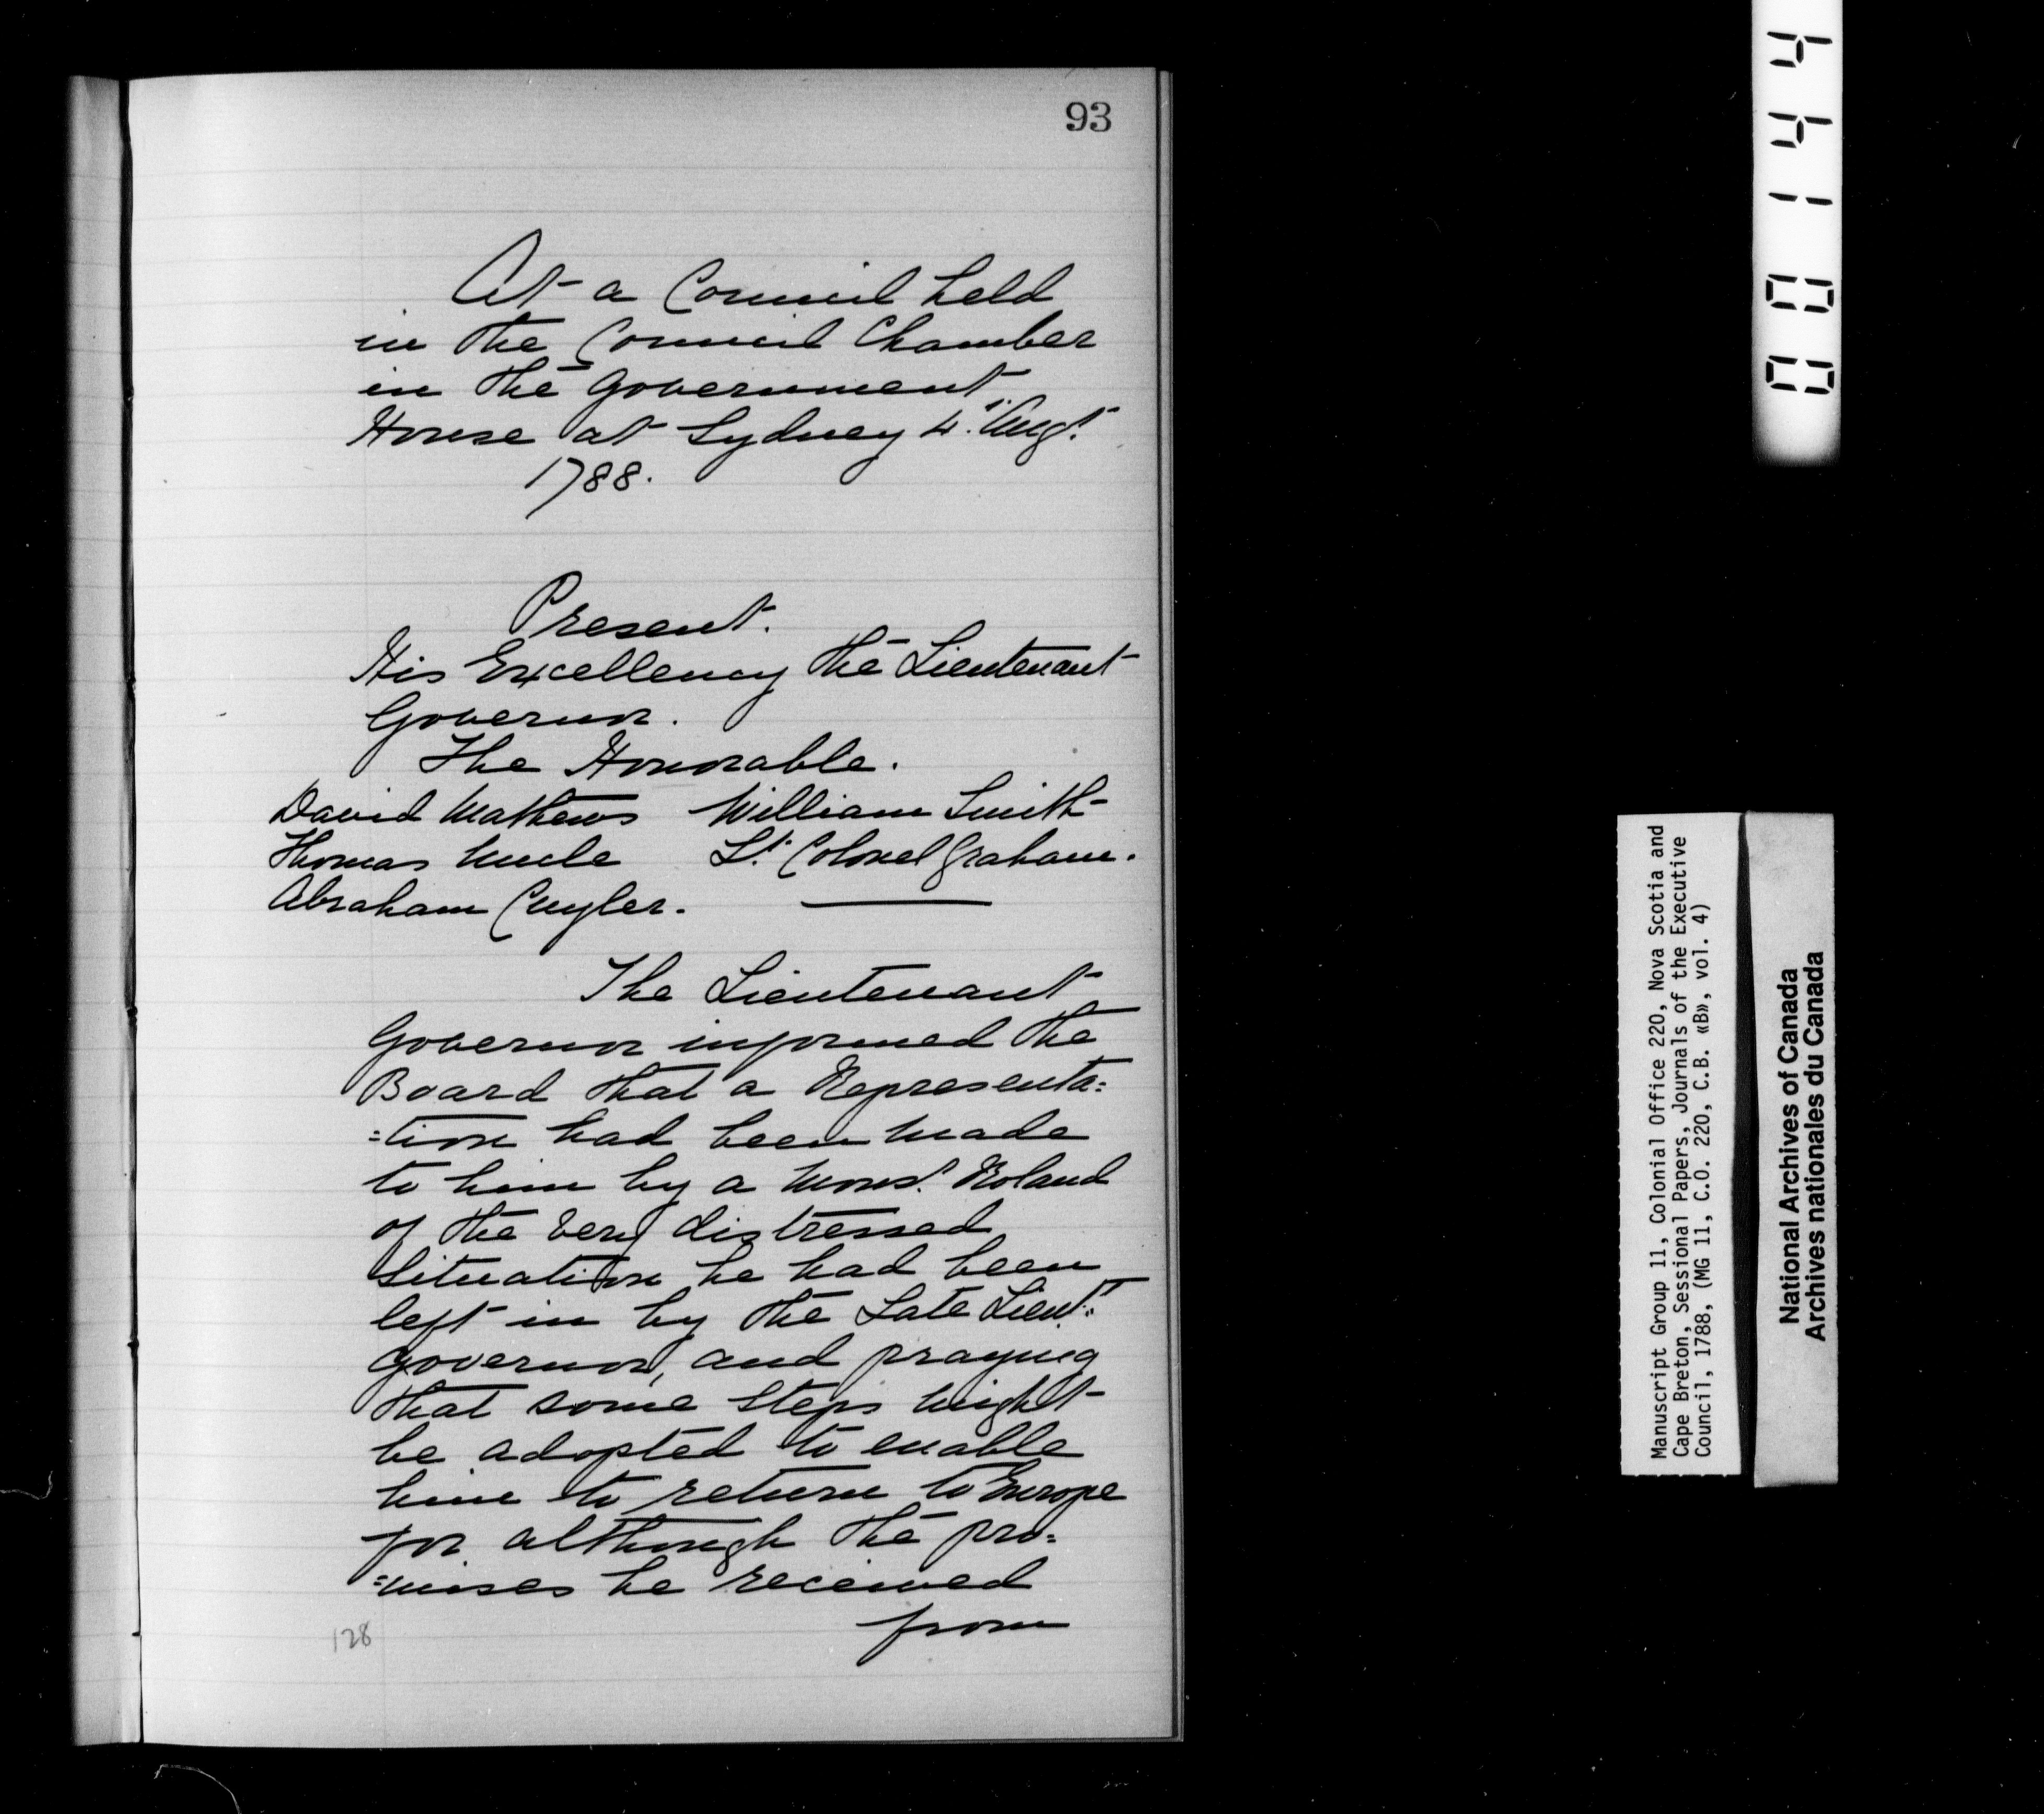 93
At a Council held
in the Council Chamber
in the Government
House at Sydney 4" Augt.
1788.
Present.
His Excellency the Lieutenant
Governor.
The Honorable.
David Mathews William Smith
Thomas Uncle Lt. Colonel Graham.
Abraham Cuyler.
The Lieutenant
Governor informed the
Board that a Representa=
=tion had been made
to him by a Monsr. Roland
of the very distressed
Situation he had been
left in by the Late Lieut.=
Governor, and praying
that some Steps might
be adopted to enable
him to return to Europe
for although the pro=
=mises he received
from
128
00144
Manuscript Group 11, Colonial Office 220, Nova Scotia and
Cape Breton, Sessional Papers, Journals of the Executive
Council, 1788, (MG 11, C.O. 220, C.B. «B», vol. 4)
National Archives of Canada
Archives nationales du Canada